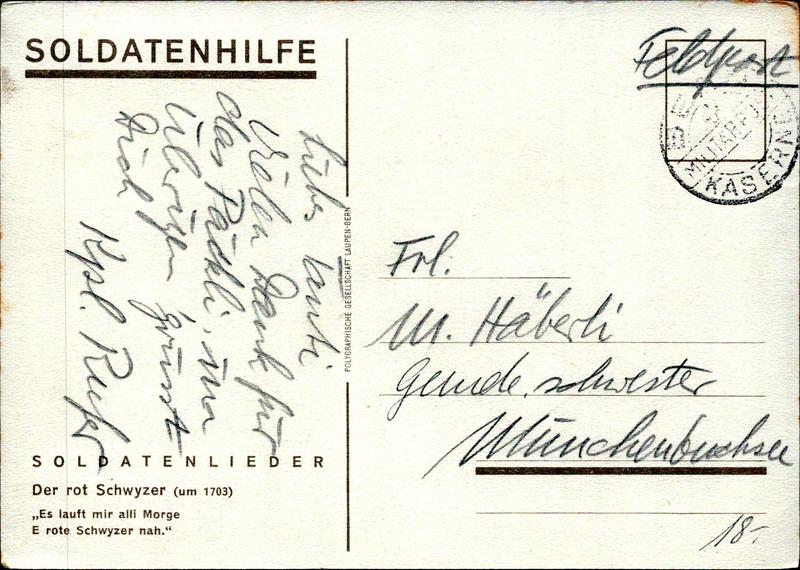 SOLDATENHILFE
Feldpost
BE
MILITÄRPO
KASERNE
Liebe Tanti
Vielen Dank für
das Päckli, und
Übrigen grüsst
Dich
Kpl. Rufer
POLYGRAPHISCHE GESELLSCHAFT LAUPEN-BERN
Frl.
M. Häberli
Gemde. schwester
Münchenbuchsee
18.-
SOLDATENLIEDER
Der rot Schwyzer (um 1703)
„Es lauft mir alli Morge
E rote Schwyzer nah.“